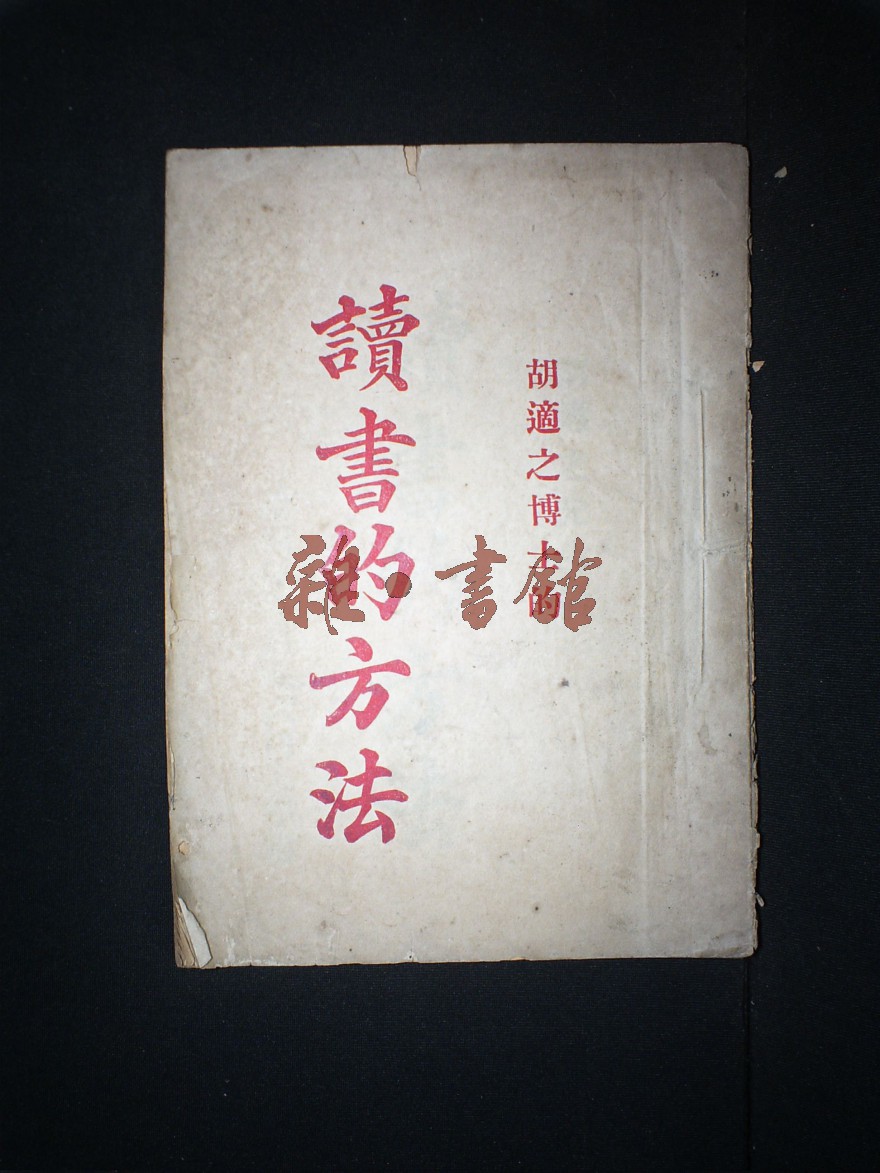 胡適之博士的
讀書的方法
雜·書館